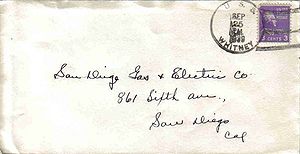 U. S. S.
SEP
25
1939
WHITNEY
CENTS 3
San Diego Gas & Electric Co.
861 Sixth Ave.,
San Diego
Cal